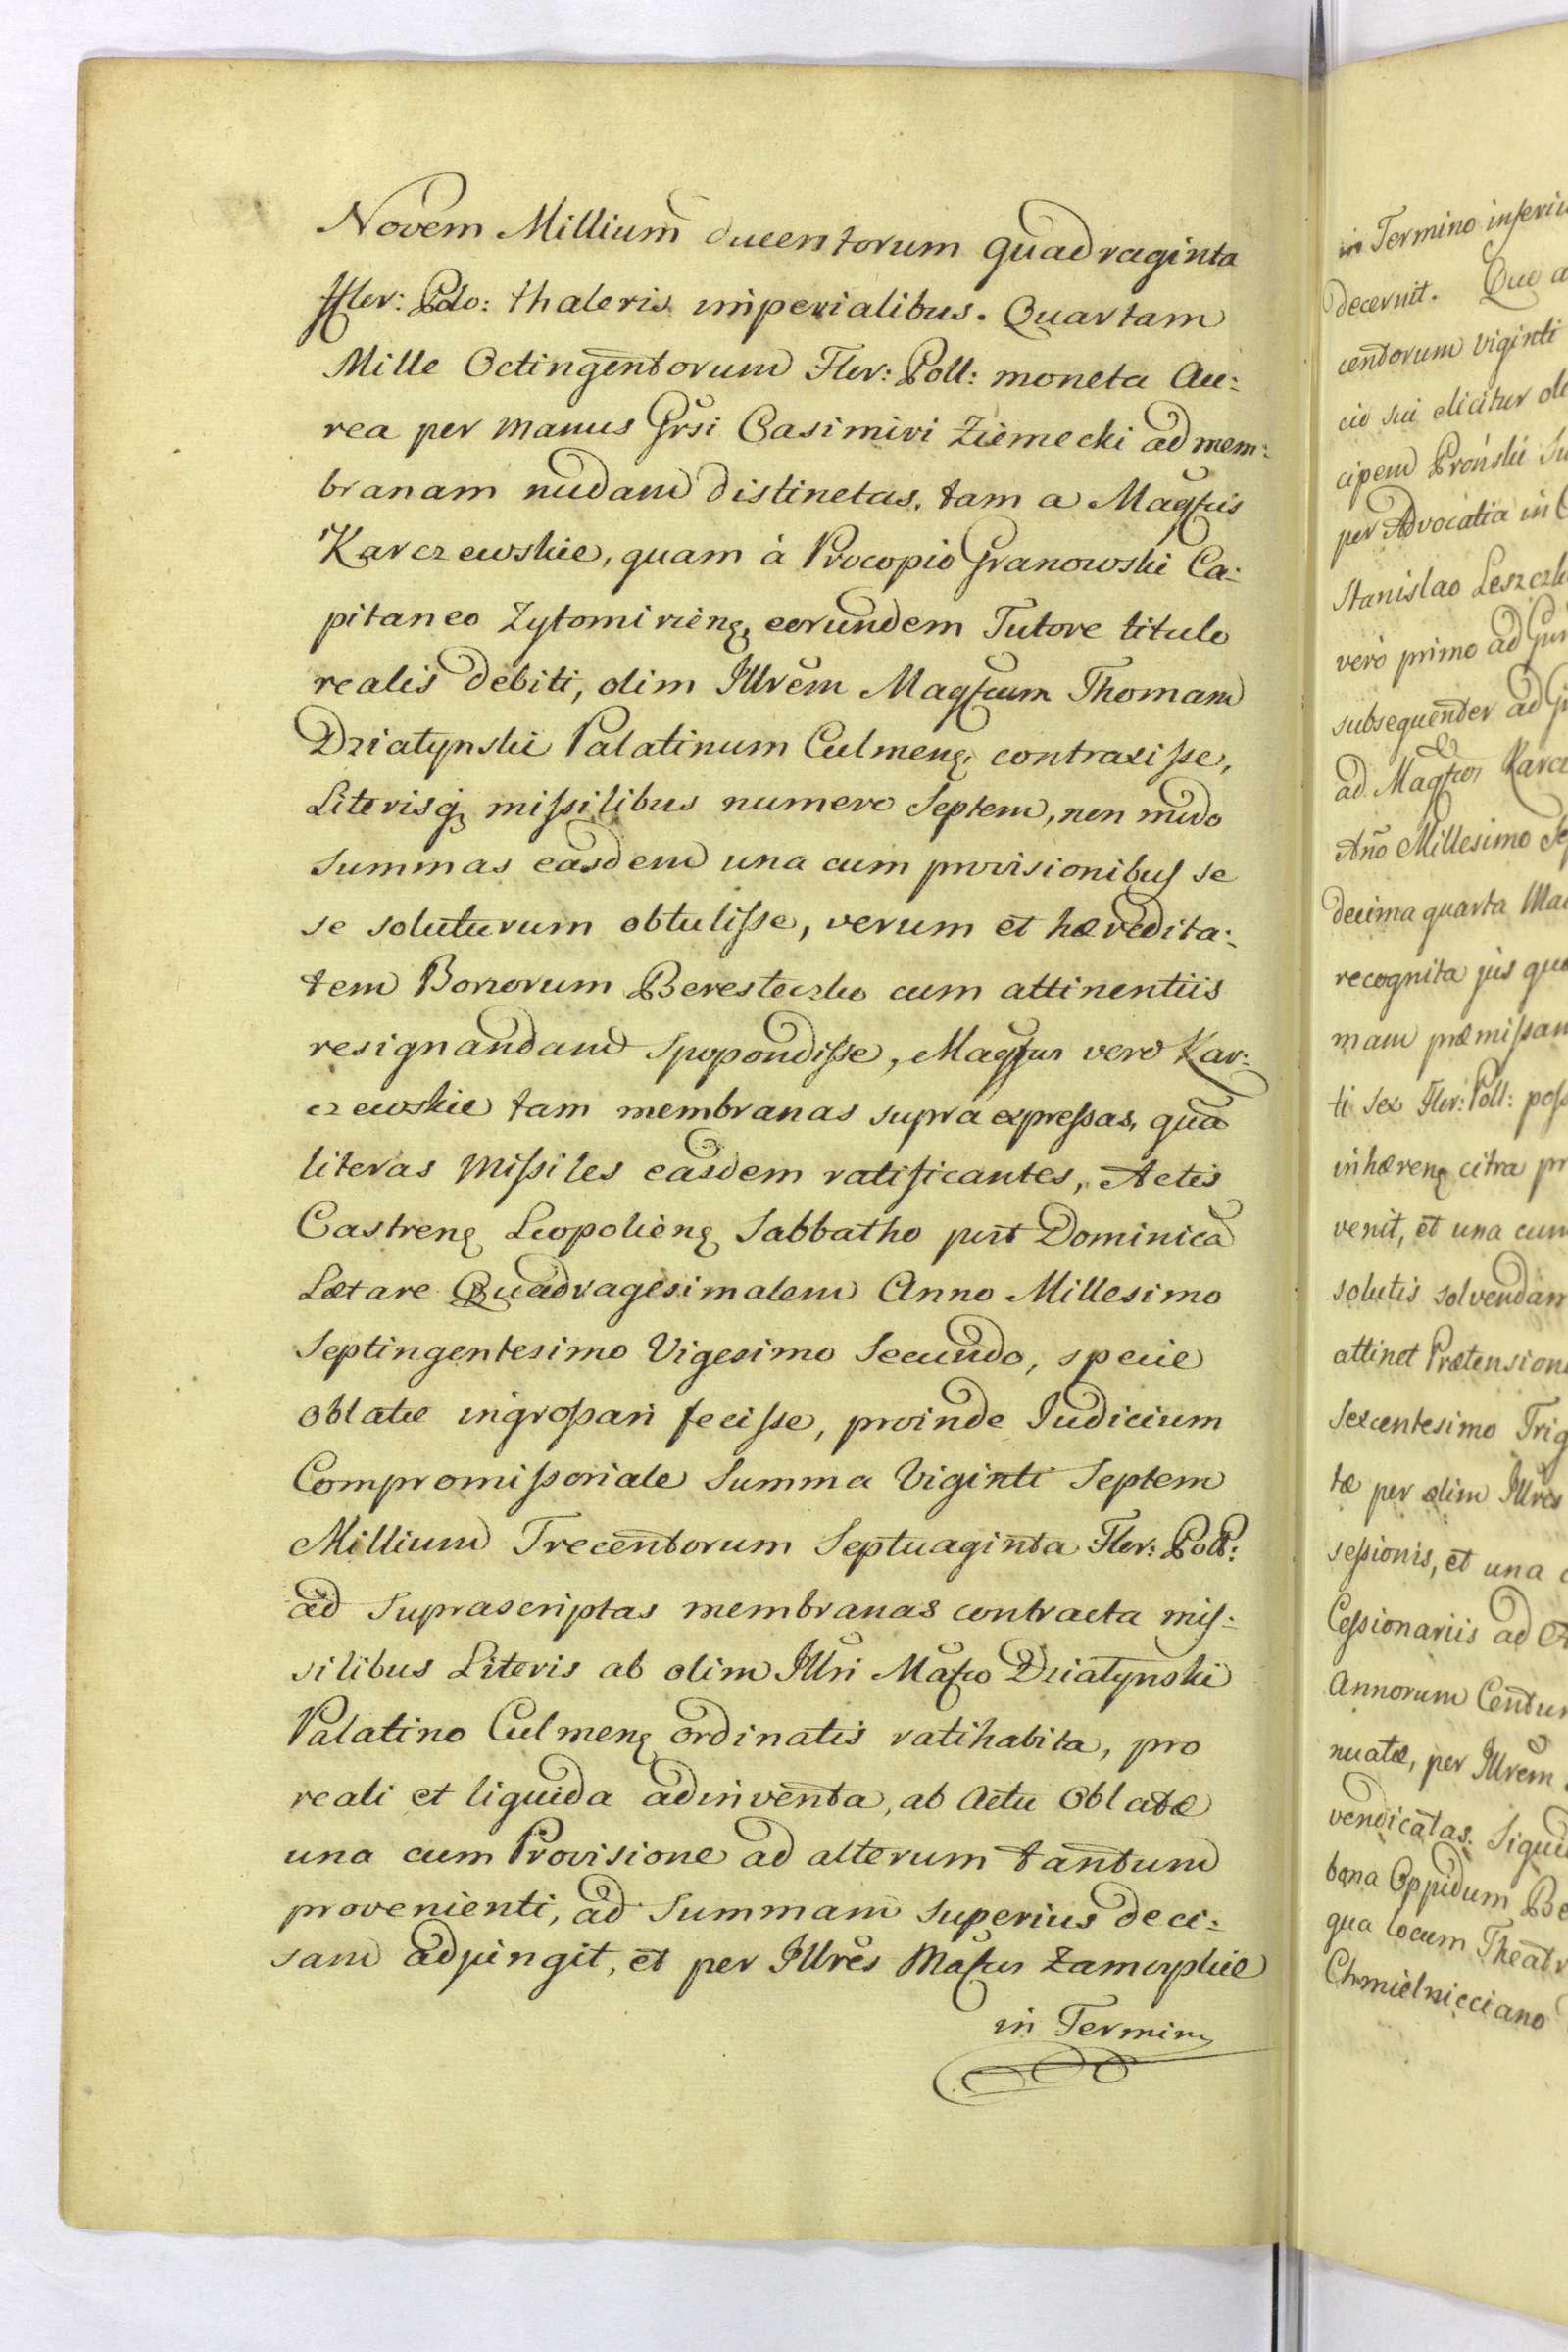 Novem Millium ducentorum quadraginta
Flor: Polo: thaleris imperialibus. Quartam
Mille Octingentorum Flor: Poll: moneta Au:
rea per manus Grsi Casimiri Ziemecki ad mem:
branam nudam distinctas, tam a Magfcis
Karczewskie, quam à Procopio Granowski Ca:
pitaneo Zytomirieng, eorundem Tutore titulo
realis debiti, olim Illrem Magfcum Thomam
Dziatynski Palatinum Culmeng, contraxisse,
Literisq missilibus numero Septem, non nudo
Summas easdem una cum provisionibus se
se soluturum obtulisse, verum et hæredita:
tem Bonorum Beresteczko cum attinentiis
resignandam spopondisse, Magfcus vero Kar:
czewskie tam membranas supra expressas, qua
literas Missiles easdem ratificantes, Actis
Castreng Leopolieng Sabbatho post Dominica
Lætare Quadragesimalem Anno Millesimo
Septingentesimo Vigesimo Secundo, specie
oblatæ ingrossari fecisse, proinde Iudicium
Compromissoriale Summa Viginti Septem
Millium Trecentorum Septuaginta Flor: Poll:
ad Suprascriptas membranas contracta mis:
silibus Literis ab olim Illri Mafco Dziatynski
Palatino Culmeng ordinatis ratihabita, pro
reali et liquida adinventa, ab Actu Oblatæ
una cum Provisione ad alterum tantum
provenienti, ad Summam superius deci:
sam adjungit, et per Illres Mafcos Zamoyskie
in Termino
in Termino inferiu
decernit. Quo a
centorum viginti
cio sui elicitur
cipem Pronski Su
per Advocatia in
Stanislao Leszcz
vero primo ad
subsequenter ad
ad Magfcos Karcz
Año Millesimo Se
decima quarta Mai
recognita jus quo
mam præmissam
ti sex Flor: Poll: poss
inhæreng citra pr
venit, et una cum
solutis solvendam
attinet Prætension
Sexcentesimo Trig
tæ per olim Illres
sessionis, et una
Cessionariis ad
Annorum Centum
nuatæ, per Illrem
vendicatas. Siqui
bona Oppidum Be
qua locum Theatr
Chmielnicciano